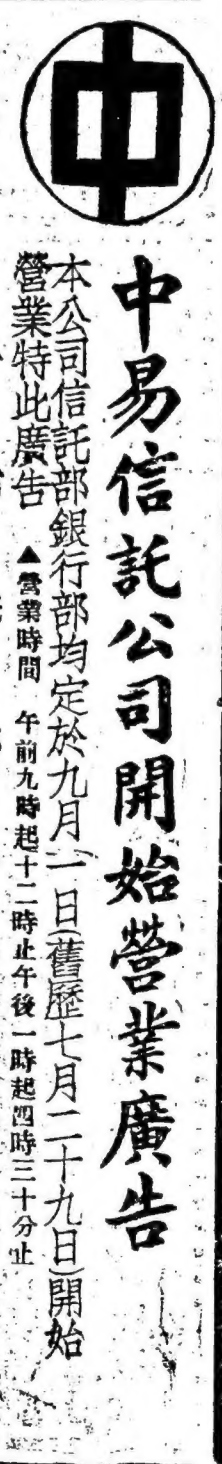 中
中易信託公司開始營業廣告
本公司信託部銀行部均定於九月一日(舊歷七月二十九日)開始
營業特此廣告 ▲營業時間 午前九時起十二時止午後一時起四時三十分止